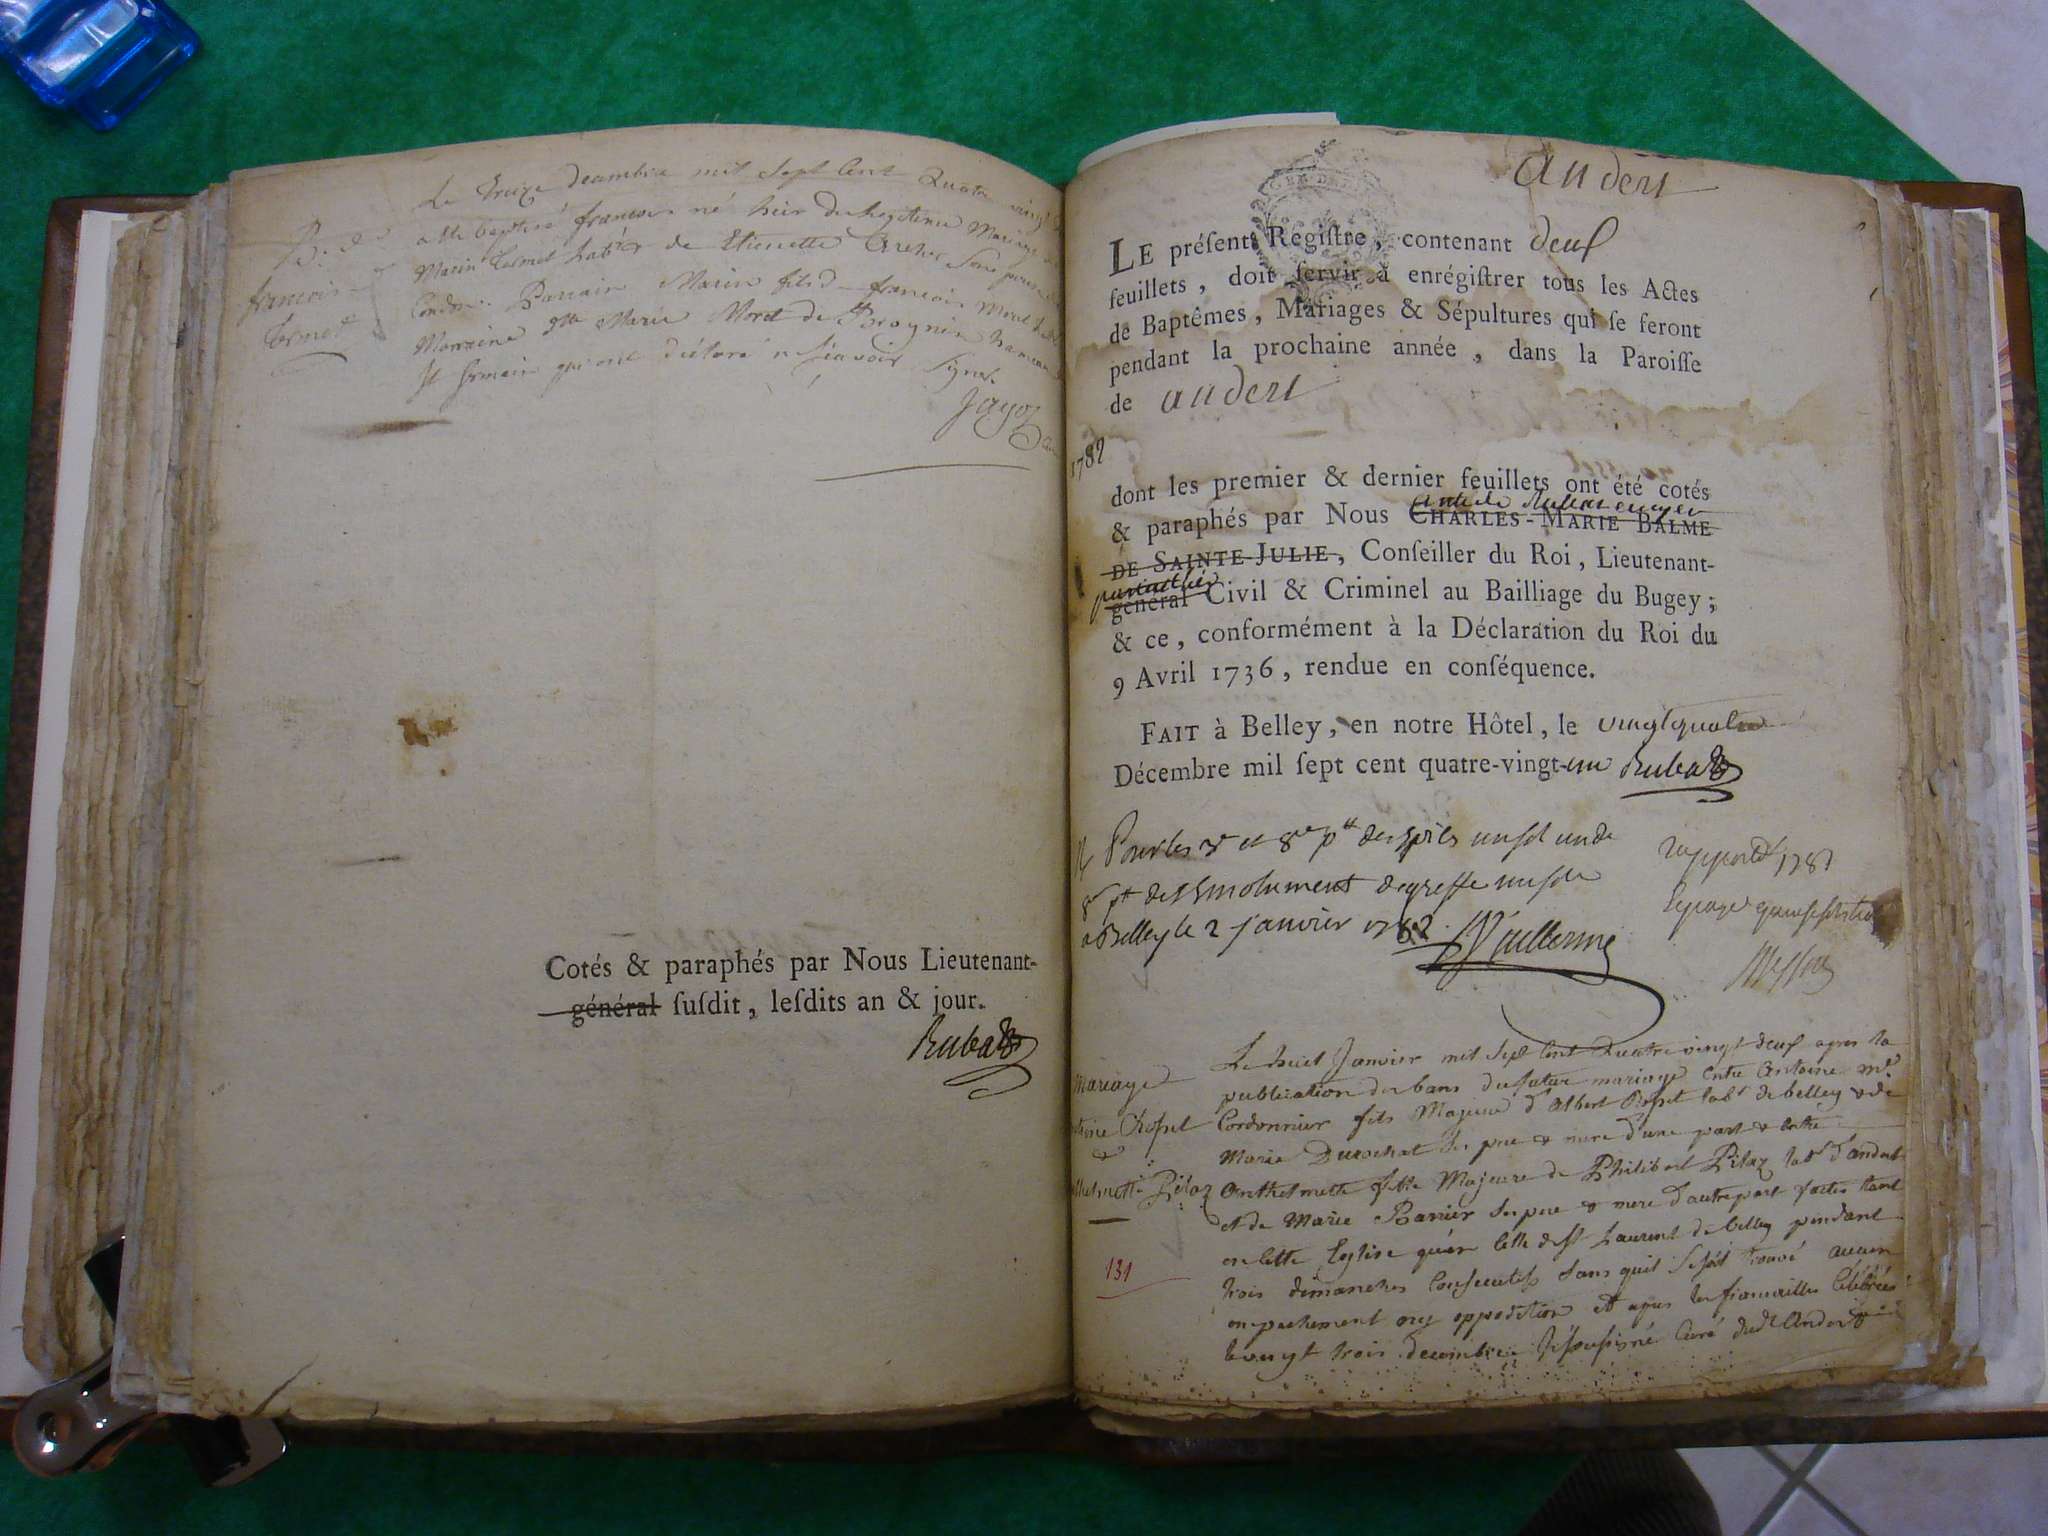 Le treize decembre mil sept Cent Quatre vingt
B. de
a été baptisé francois né hier du legitime Mariage de
francois
Marin Cornet lab.r & de Etienette
Cornet
Condon. Parrain Marin fils de francois
Marraine Marie Moret de Brognin hameau
St Germain qui ont déclaré ne sçavoir signer.
Jayoz
Cotés & paraphés par Nous Lieutenant-
général ſuſdit, leſdits an & jour.
Rubat
andert
LE préſent Regiſtre, contenant deuſ
feuillets, doit ſervir à enrégiſtrer tous les Actes
de Baptêmes, Mariages & Sépultures qui ſe feront
pendant la prochaine année, dans la Paroiſſe
de andert
1782
dont les premier & dernier feuillets ont été cotés
Antede Rubat ecuyer
& paraphés par Nous CHARLES-MARIE BALME
DE SAINTE-JULIE, Conſeiller du Roi, Lieutenant-
particulier
général Civil & Criminel au Bailliage du Bugey;
& ce, conformément à la Déclaration du Roi du
9 Avril 1736, rendue en conſéquence.
FAIT à Belley, en notre Hôtel, le vingtquatre
Décembre mil ſept cent quatre-vingt-un Rubat
Pour les 3e et 8e ptt des un sol un de
8e ptt de Emolument de greffe un sol
a Belley le 2 janvier 1782. Vuillerme
rapporté 1781
Le huit Janvier mil sept Cent Quatre vingt deuſ apres la
Mariage
publication des bans du futur mariage entre Antoine m.e
toine Chosset
Cordonnier fils Majeur d'Albert lab.r de belley & de
&
Marie Durochat ses pere & mere d'une part & entre
thelmette Pilaz
Anthelmette fille Majeure de Philibert Pilaz lab.r d'andert
et de Marie Banier ses pere & mere d'autre part faites tant
en cette Eglise qu'en celle de St Laurent de belley pendant
131
trois dimanches Consecutifs sans quil se soit trouvé aucun
empechement ny opposition et apres les fiancailles Célébrées
le vingt trois decembre Je soussigné Curé dud.t Andert